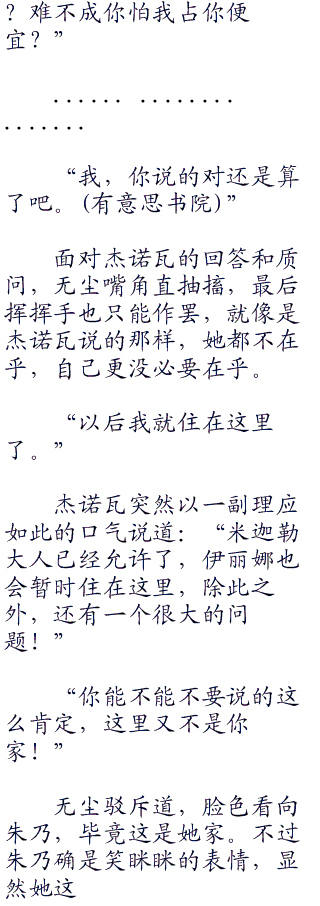 ？难不成你怕我占你便
宜？”
...... ........
.......
“我，你说的对还是算
了吧。(有意思书院)”
面对杰诺瓦的回答和质
问，无尘嘴角直抽搐，最后
挥挥手也只能作罢，就像是
杰诺瓦说的那样，她都不在
乎，自己更没必要在乎。
“以后我就住在这里
了。”
杰诺瓦突然以一副理应
如此的口气说道：“米迦勒
大人已经允许了，伊丽娜也
会暂时住在这里，除此之
外，还有一个很大的问
题！”
“你能不能不要说的这
么肯定，这里又不是你
家！”
无尘驳斥道，脸色看向
朱乃，毕竟这是她家。不过
朱乃确是笑眯眯的表情，显
然她这